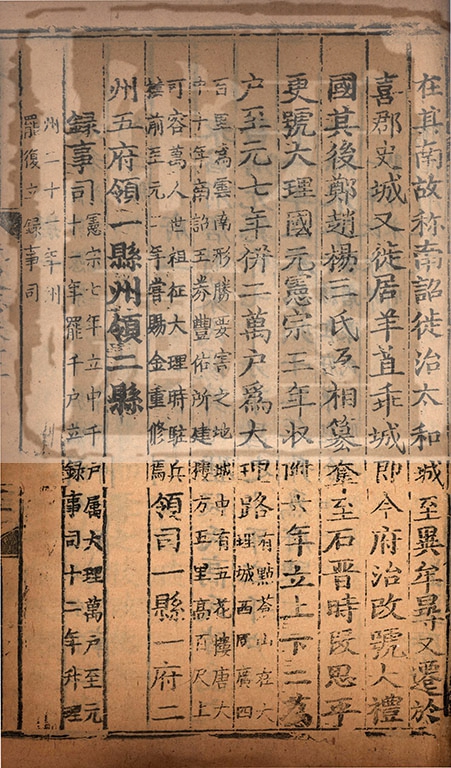 在其南故称南詔徙治太和城至異牟尋又遷於
喜郡史城又徙居羊苴乖城即今府治改號大禮
國其後鄭趙楊三氏互相篡奪至石晉時段思平
更號大理國元憲宗三年收附六年立上下二萬
户至元七年併二萬户爲大理路
有點苍山在大
理城西周廣四
百里爲雲南形勝要害之地城中有五花樓唐大
中十年南詔王券豐佑所建樓方五里高百尺上
可容萬人世祖征大理時駐兵
樓前至元三年嘗賜金重修焉
領司一縣一府二
州五府領一縣州領二縣
録事司
憲宗七年立中千户属大理萬户至元
十一年罷千户立録事司十二年升理
州二十年州
罷復立録事司